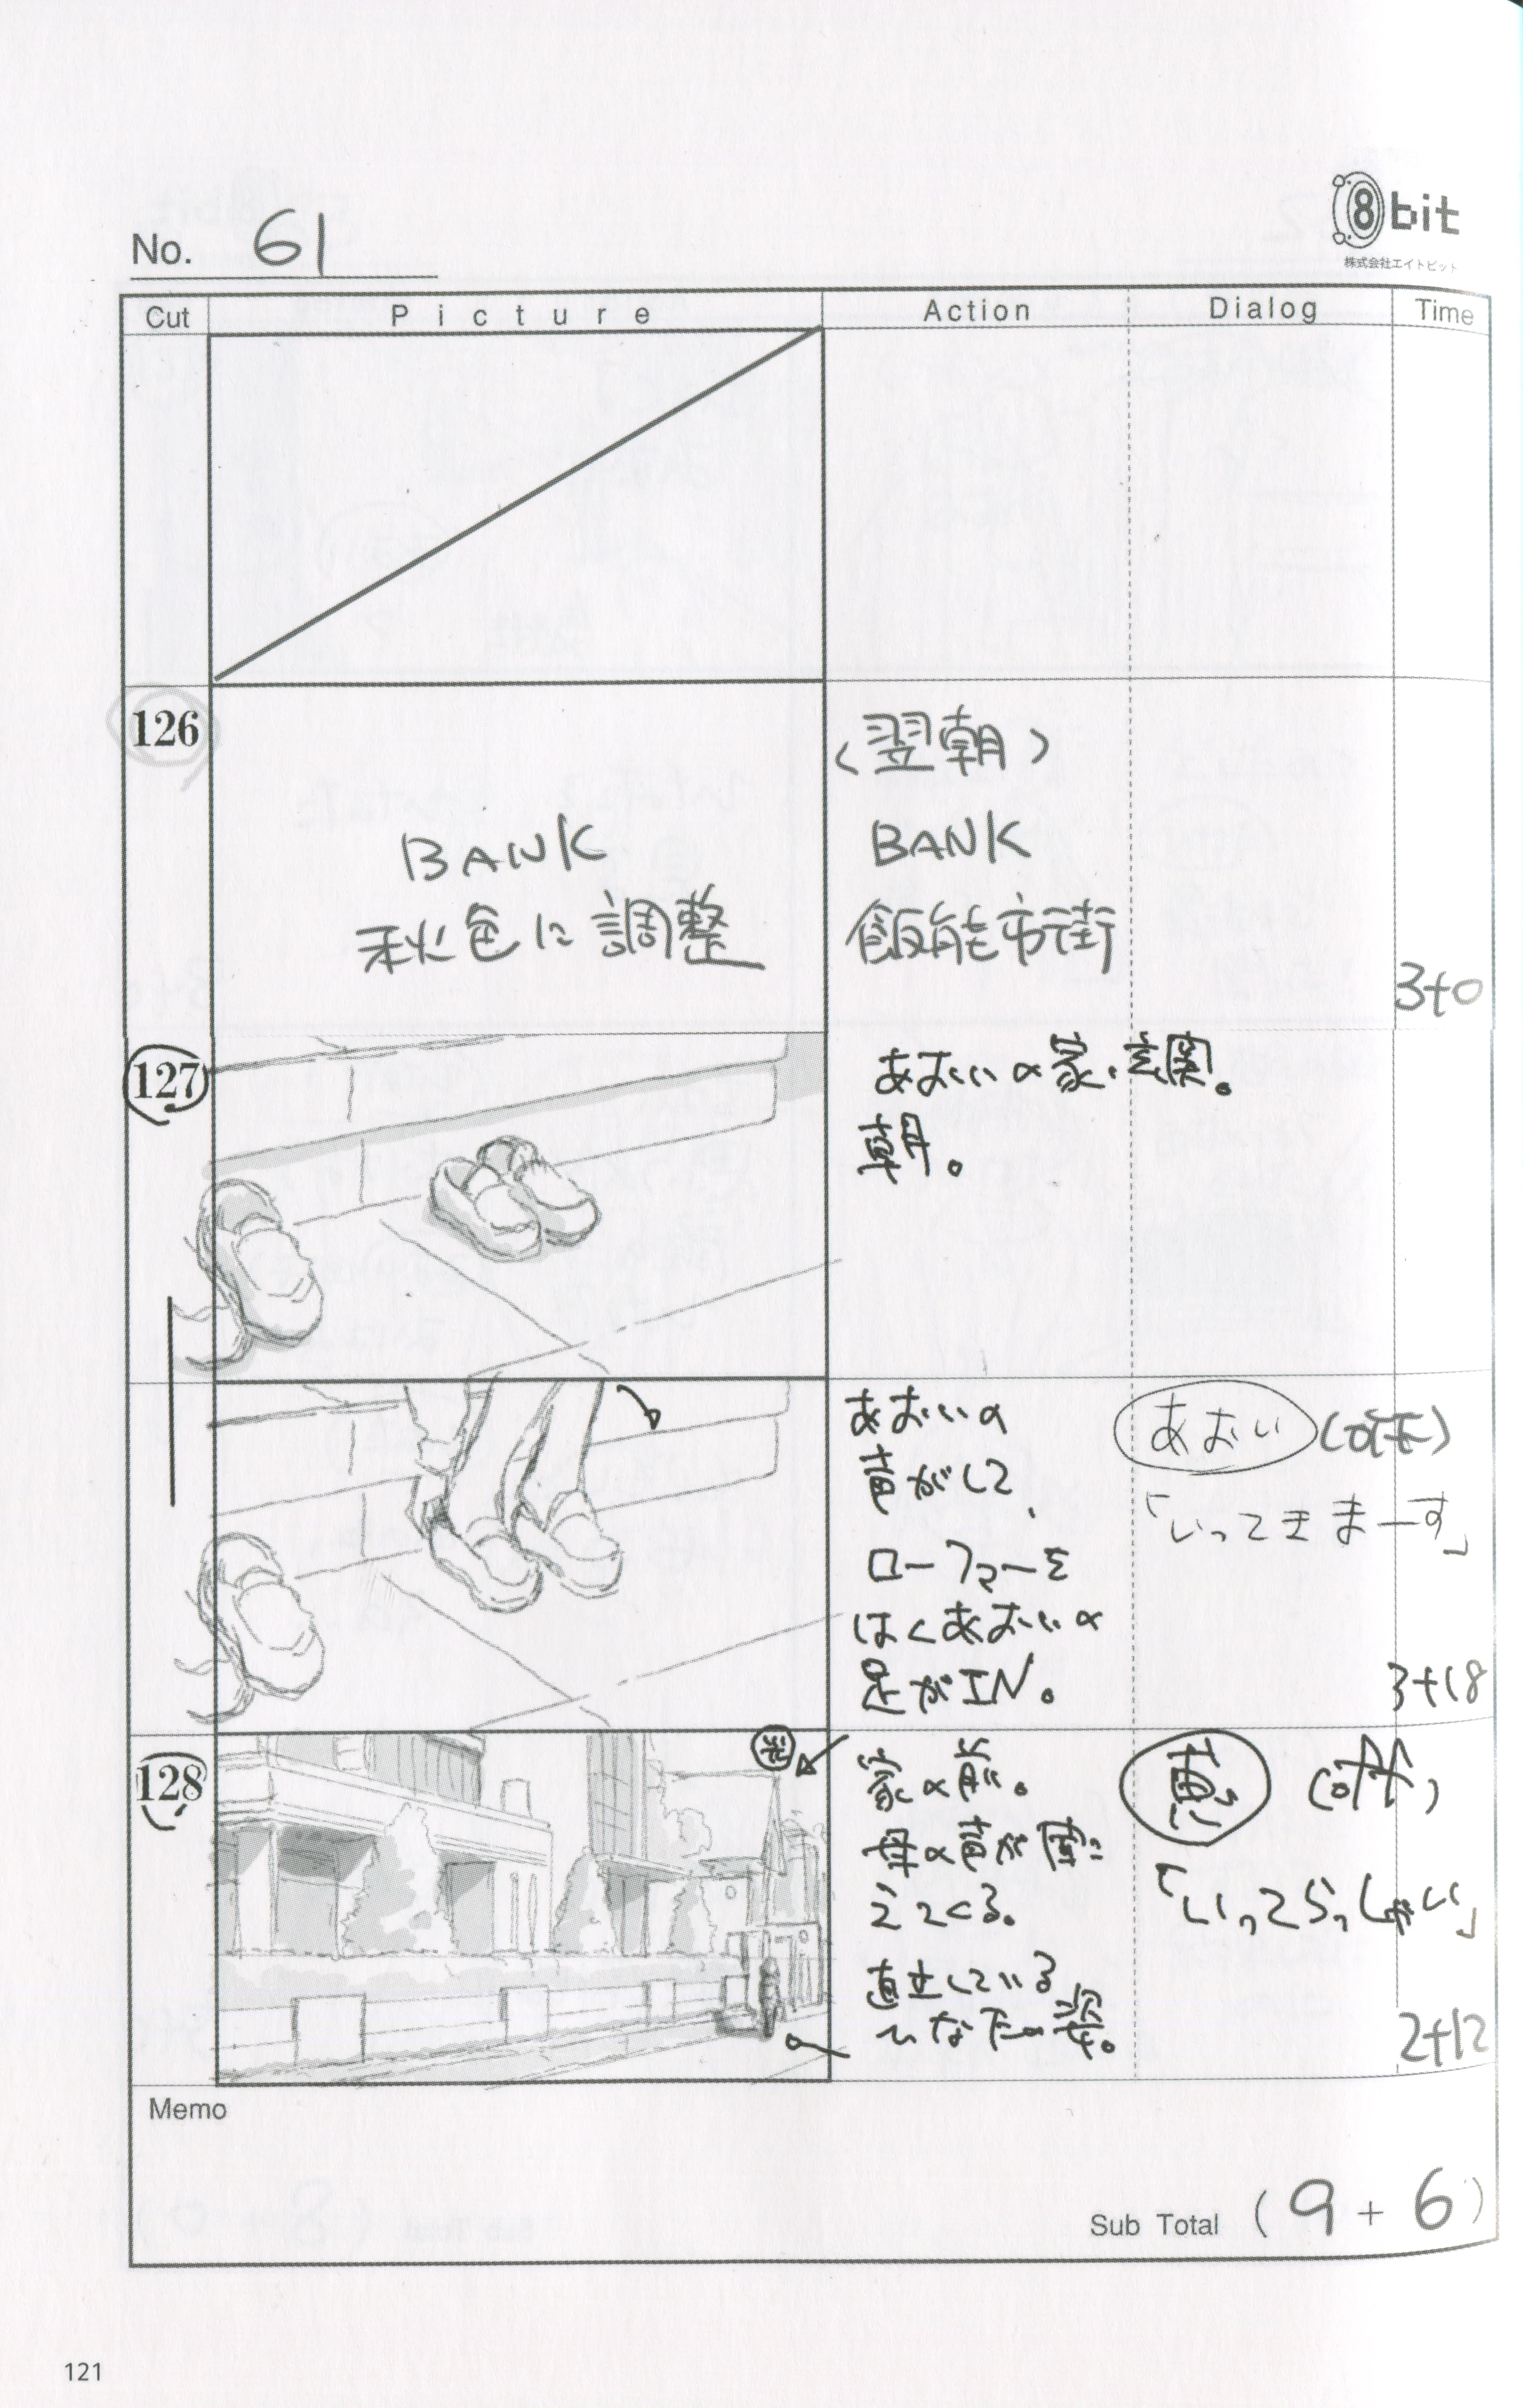 8bit
株式会社エイトビット
No. 61
Cut Picture Action Dialog Time
126
BANK
秋色に調整
(翌朝)
BANK
飯能市街
3+0
127
あおいの家、玄関。
朝。
あおいの
声がして、
ローファーを
はくあおいの
足がIN。
あおい(off)
「いってきまーす」
3+18
128
家の前。
母の声が聞こ
えてくる。
直立している
ひなたの姿。
恵(off)
「いってらっしゃい」
2+12
Memo
Sub Total (9+6)
121